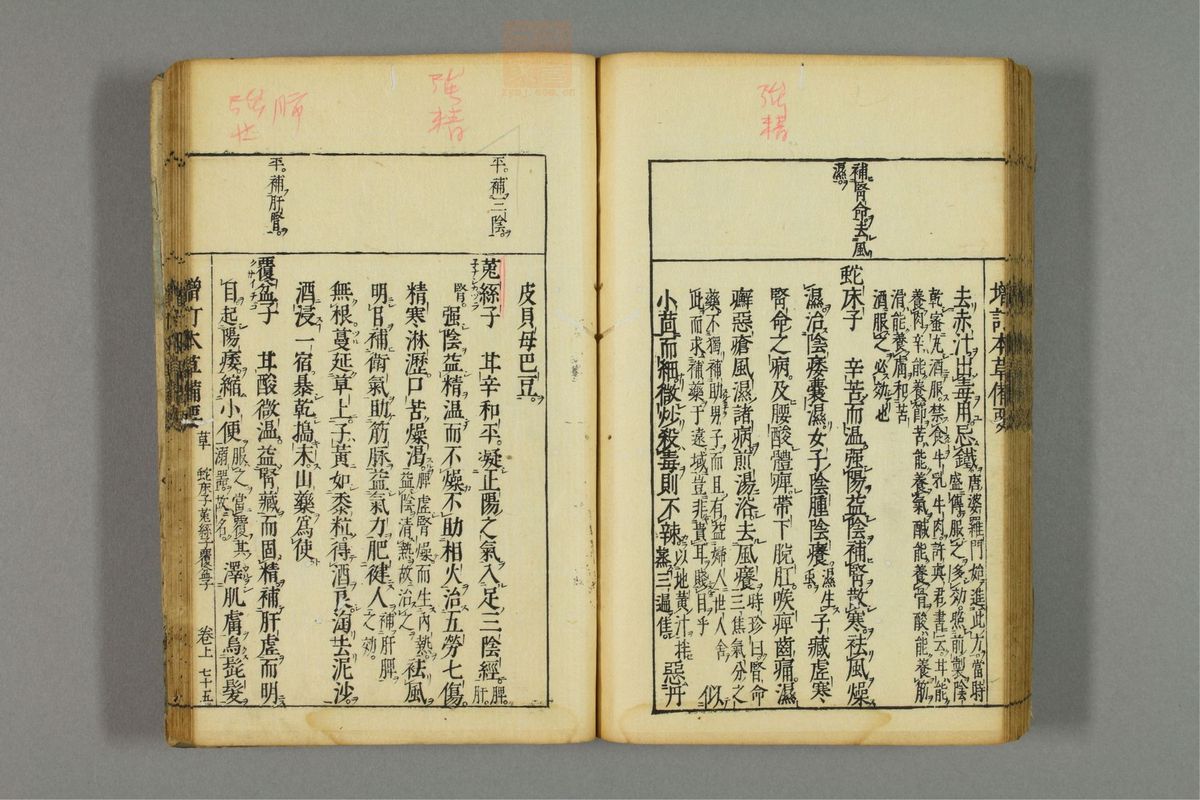 強
精
補腎命去風
濕
増訂本草備要
去赤汁出毒用忌鐵唐婆羅門始進此方當時盛傳服之多効照前製陰
乾蜜丸酒服禁食牛乳牛肉許真君書云其甘能
養肉辛能養節苦能養氣鹹能養骨酸能養筋
滑能養膚和苦酒服之必効也
蛇床子 辛苦而温強陽益陰補腎散寒祛風燥
濕治陰痿囊濕女子陰腫陰癢濕生蟲子藏虛寒
腎命之病及腰酸體痺帶下脫肛喉痺齒痛濕
癬惡瘡風濕諸病煎湯浴去風癢時珍曰腎命三焦氣分之
藥不獨補助男子而且有益婦人世人舍
此而求補藥于遠域豈非貴耳賤目乎 似
小茴而細微炒殺毒則不辣以地黄汁拌蒸三遍佳 惡丹
皮貝母巴豆
強
精
平補三陰
菟絲子 甘辛和平凝正陽之氣入足三陰經脾肝
腎強陰益精温而不燥不助相火治五勞七傷
精寒淋瀝口苦燥渴脾虛腎燥而生内熱益陰清熱故治之祛風
明目補衛氣助筋脉益氣力肥健人補肝脾之効
無根蔓延草上子黄如黍粒得酒良淘去泥沙
酒浸一宿暴乾搗末山藥為使
平補肝腎
覆盆子 甘酸微温益腎藏而固精補肝虛而明
目起陽痿縮小便服之當覆其溺器故名澤肌膚烏髭髪
増訂本草備要 草 蛇床子菟絲子覆盆子 卷上 七十五